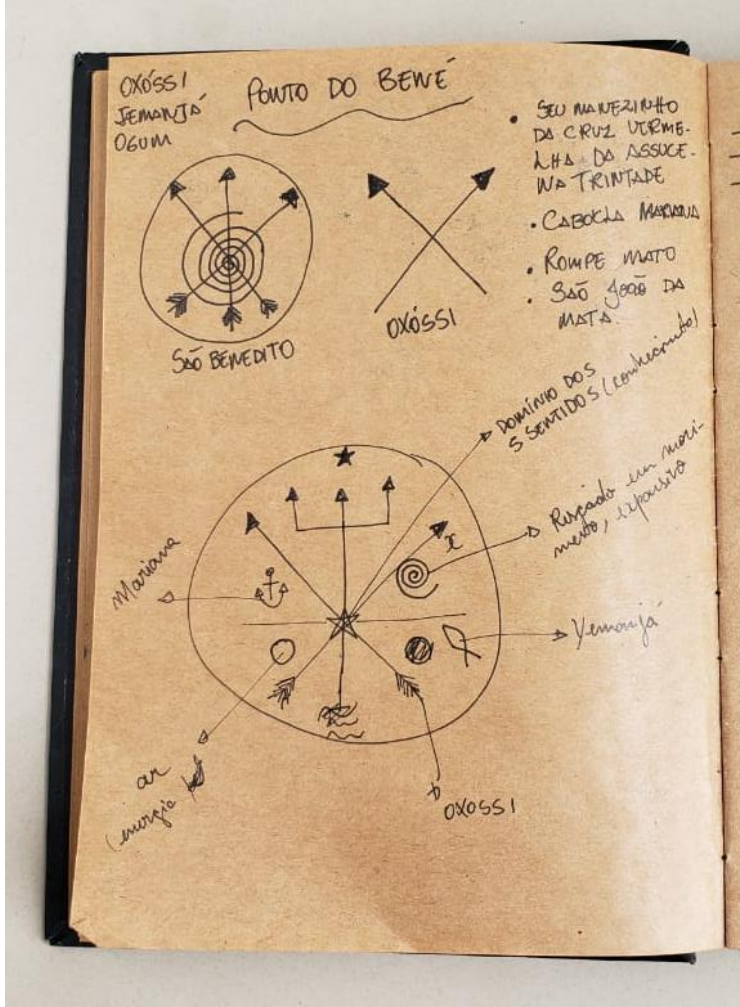 OXÓSSI
IEMANJÁ
OGUM
PONTO DO BENÉ
• SEU MANEZINHO
DA CRUZ VERME-
LHA DA ASSUCE-
NA TRINTADE
• CABOCLA MARIANA
• ROMPE MATO
• SÃO JOÃO DA
MATA.
OXÓSSI
SÃO BENEDITO
DOMÍNIO DOS
5 SENTIDOS (conhecimento)
Riscado em movi-
mento, expansivo
Mariana
Yemanjá
ar
(energia
OXOSSI